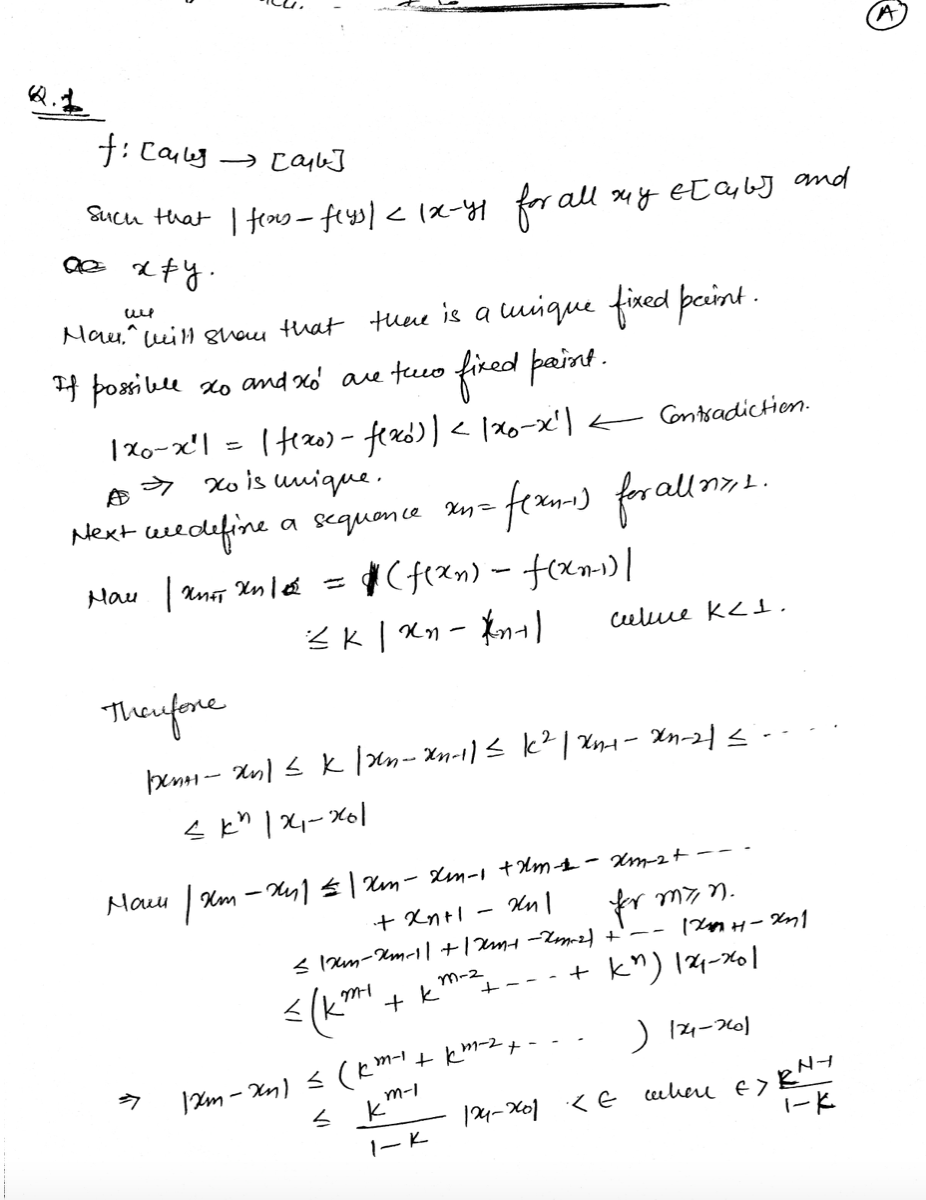 A
Q.1
f: [a,b] → [a,b]
such that |f(x) - f(y)| < |x-y| for all x,y ∈ [a,b] and
x ≠ y.
we
Now, ^ will show that there is a unique fixed point.
If possible x₀ and x₀' are two fixed point.
|x₀-x'| = |f(x₀) - f(x₀')| < |x₀-x'| ← Contradiction.
⇒ x₀ is unique.
Next we define a sequence xₙ = f(xₙ₋₁) for all n ≥ 1.
Now |xₙ₊₁ - xₙ| = |(f(xₙ) - f(xₙ₋₁)|
≤ K |xₙ - xₙ₋₁| where K<1.
Therefore
|xₙ₊₁ - xₙ| ≤ K |xₙ - xₙ₋₁| ≤ k² |xₙ₋₁ - xₙ₋₂| ≤ .....
≤ kⁿ |x₁ - x₀|
Now |xₘ - xₙ| ≤ |xₘ - xₘ₋₁ + xₘ₋₁ - xₘ₋₂ + ----
+ xₙ₊₁ - xₙ| for m ≥ n.
≤ |xₘ-xₘ₋₁| + |xₘ₋₁ - xₘ₋₂| + --- |xₙ₊₁ - xₙ|
≤ (k^{m-1} + k^{m-2} + ---- + kⁿ) |x₁-x₀|
⇒ |xₘ - xₙ| ≤ (k^{m-1} + k^{m-2} + - - - ) |x₁-x₀|
≤ k^{m-1}/(1-K) |x₁-x₀| < ϵ where ϵ > k^{N-1}/(1-K)